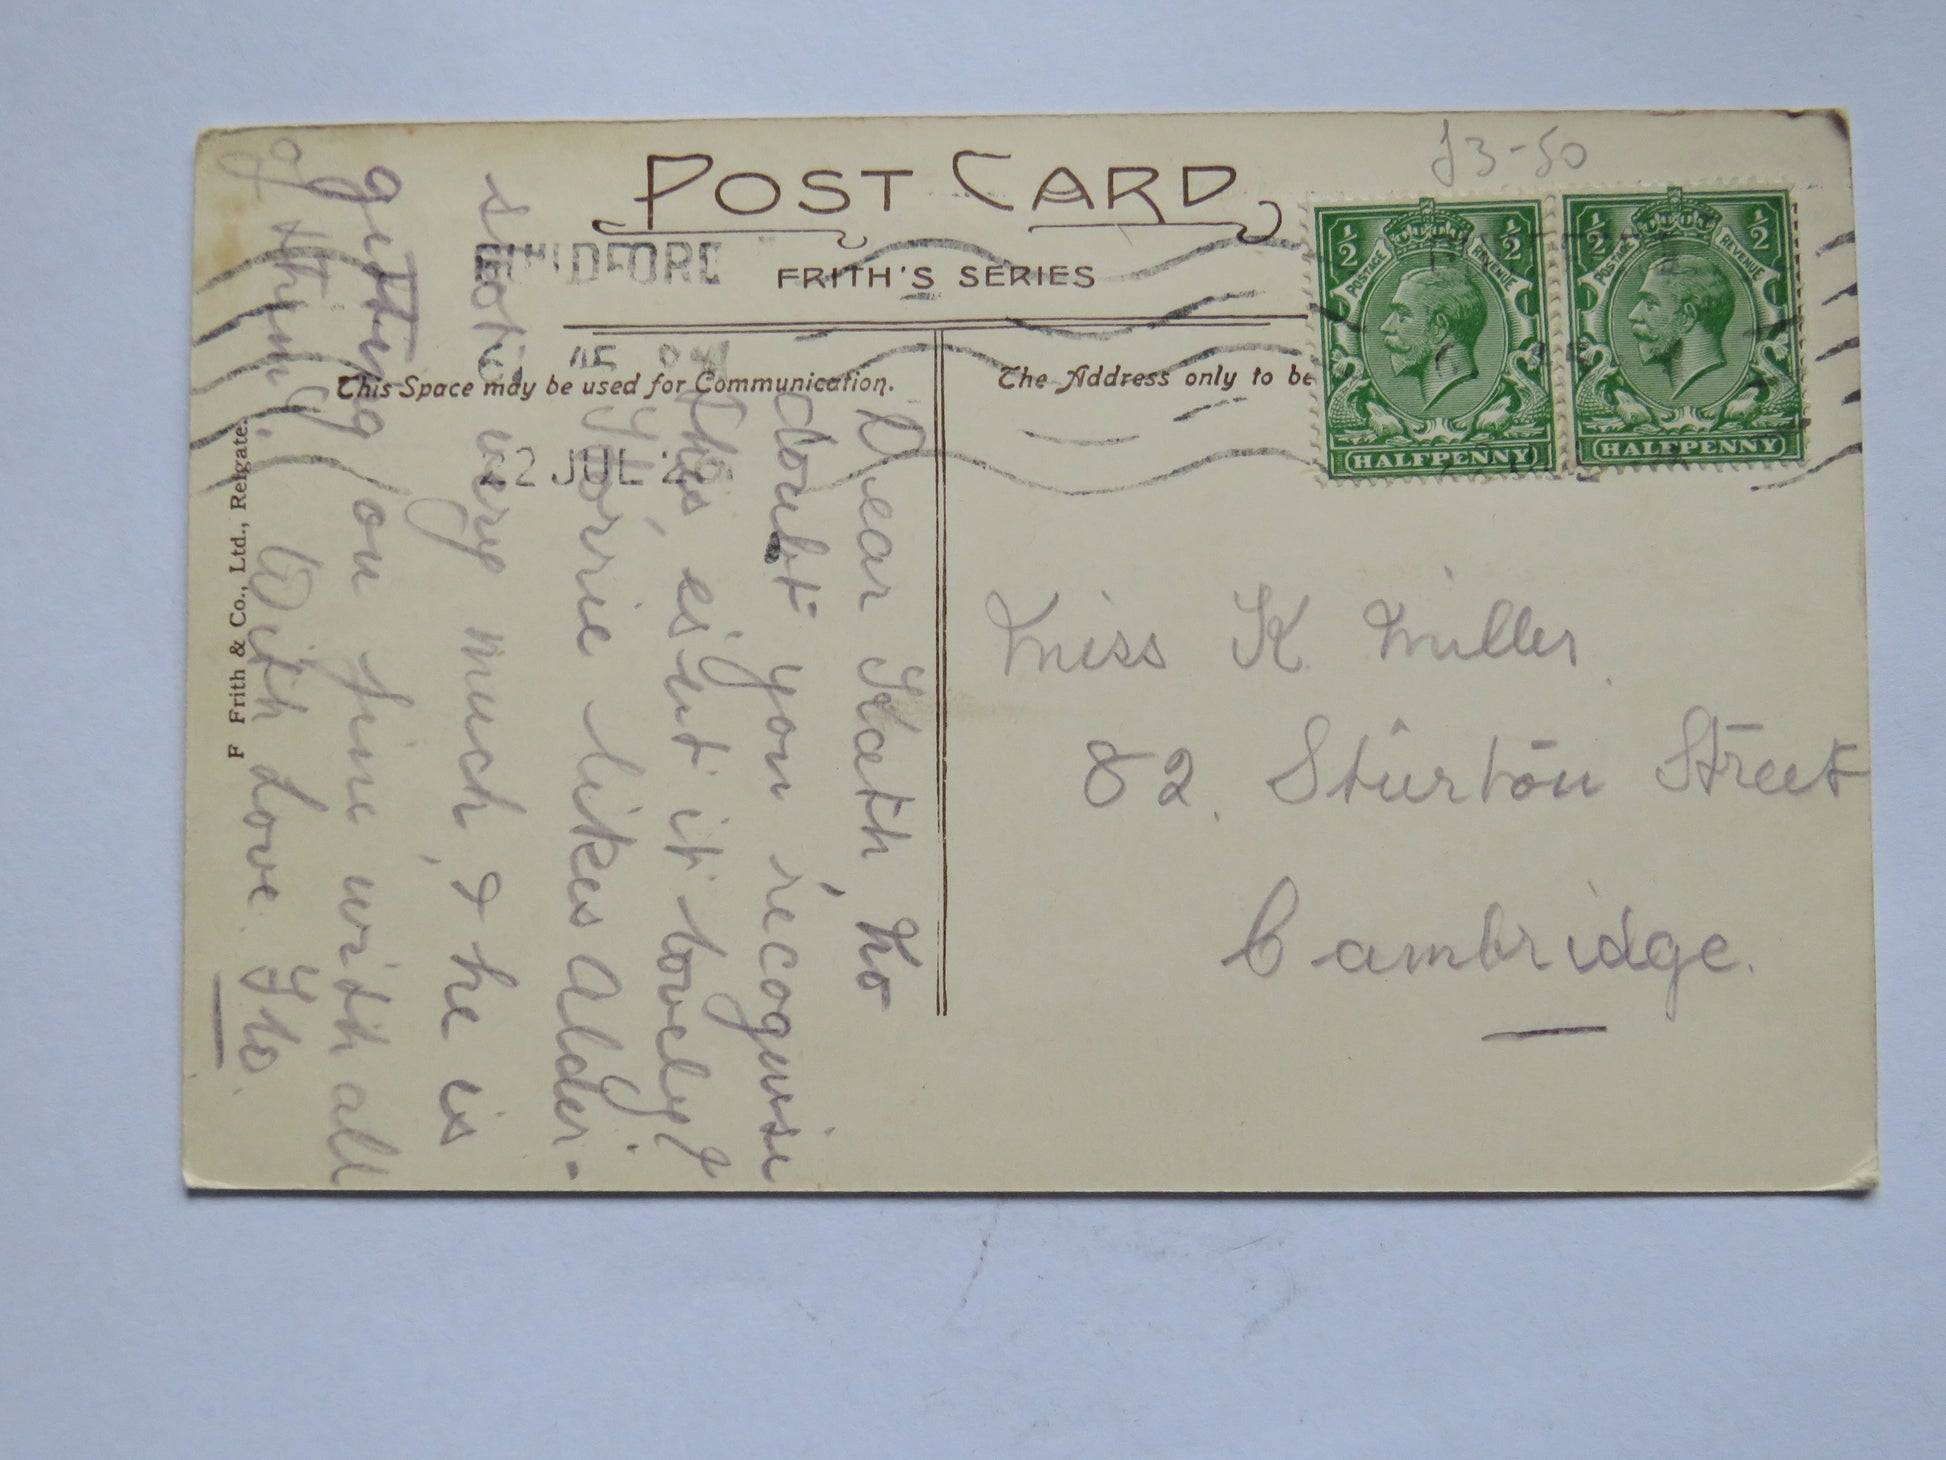 £3-50
POST CARD
GUILDFORD
FRITH'S SERIES
This Space may be used for Communication.
The Address only to be
45 PM
22 JUL
½ ½
POSTAGE REVENUE
HALFPENNY
½ ½
POSTAGE REVENUE
HALFPENNY
Dear Kath, No
doubt you recognise
this, es'nt it lovely?
likes Alder-
shot very much, & he is
getting on fine with all
of them. With Love. Flo.
F Frith & Co., Ltd., Reigate.
Miss K Miller.
82. Sturton Street
Cambridge.